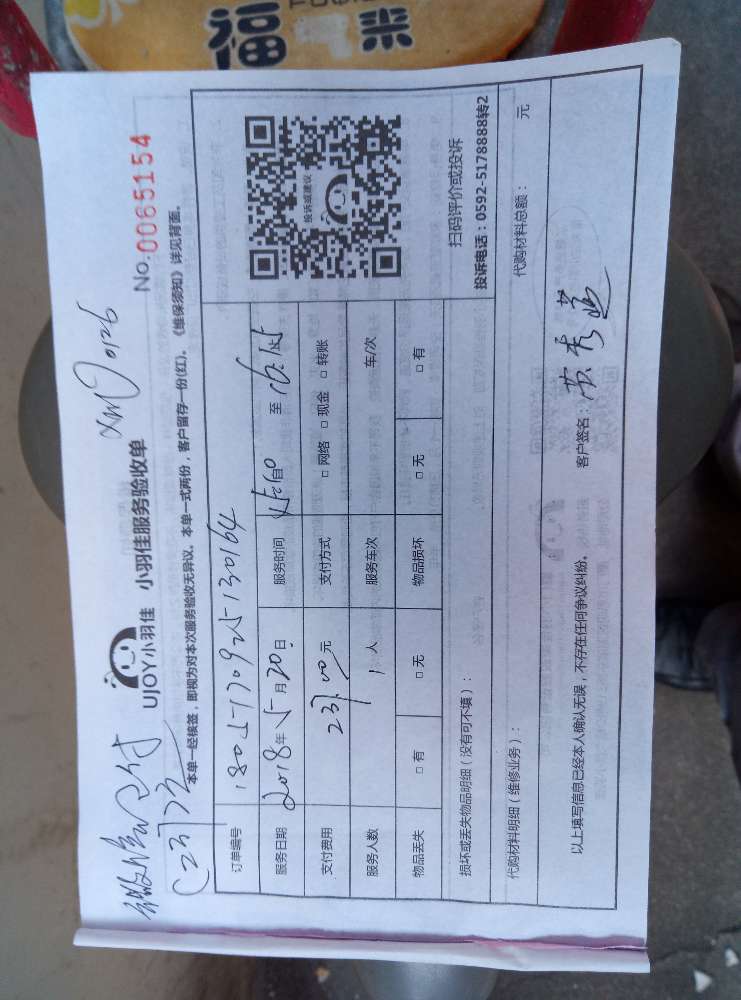 福
米
微信已付
(237元
XM0126
UJOY小羽佳 小羽佳服务验收单
No.0065154
本单一经核签，即视为对本次服务验收无异议。本单一式两份，客户留存一份(红)。《维保须知》详见背面。
订单编号 1805-170925-130164
服务日期 2018年5月20日 服务时间 15:00自 至 16:15
支付费用 237.00元 支付方式 □ 网络 □ 现金 □ 转账
服务人数 1人 服务车次 车/次
物品丢失 □ 有 □ 无 物品损坏 □ 无 □ 有
投诉或建议
扫码评价或投诉
投诉电话：0592-5178888转2
损坏或丢失物品明细（没有可不填）：
代购材料明细（维修业务）： 代购材料总额： 元
以上填写信息已经本人确认无误，不存在任何争议纠纷。 客户签名：黄秀莲